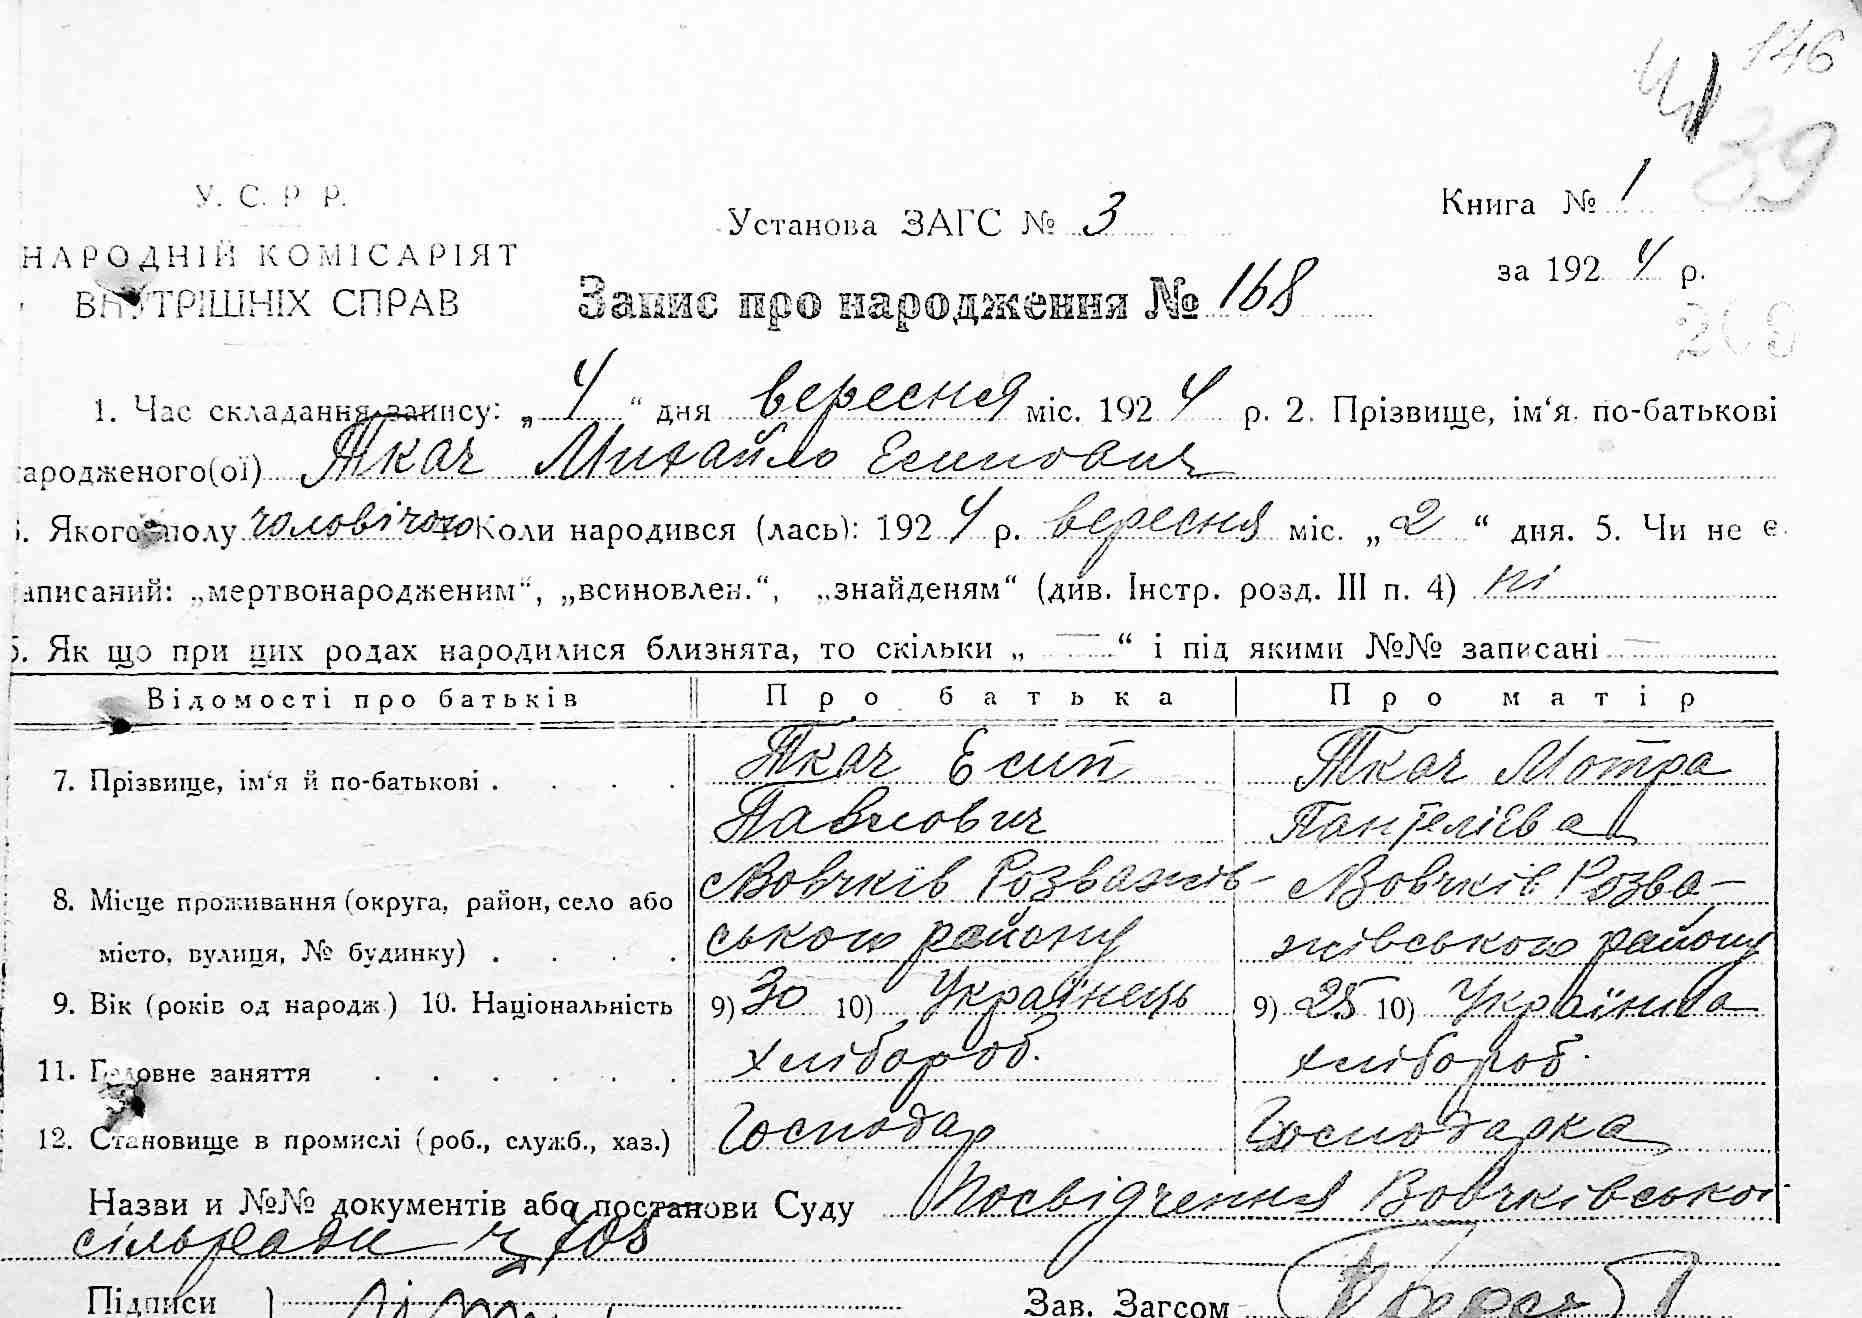 146
39
У. С. Р Р.
НАРОДНІЙ КОМІСАРІЯТ
ВНУТРІШНІХ СПРАВ
Установа ЗАГС № 3
Книга № 1
за 1924 р.
Запис про народження № 168
1. Час складання запису: „4“ дня вересня міс. 1924 р. 2. Прізвище, ім‘я по-батькові
ародженого(ої) Ткач Михайло Есипович
Якого полу чоловічого Коли народився (лась): 1924 р. вересня міс. „2“ дня. 5. Чи не є
аписаний: „мертвонародженим“, „всиновлен.“, „знайденям“ (див. Інстр. розд. III п. 4) ні
Як що при цих родах народилися близнята, то скільки „—“ і під якими №№ записані —
Відомості про батьків Про батька Про матір
7. Прізвище, ім‘я й по-батькові . . . . Ткач Есип Ткач Мотра
Павлович Пантелієва
8. Місце проживання (округа, район, село або Вовчків Розважів- Вовчків Розва-
місто, вулиця, № будинку) . . . . ського району жівського району
9. Вік (років од народж.) 10. Національність 9) 30 10) Українець 9) 25 10) Українка
11. Головне заняття . . . . . . хлібороб. хлібороб.
12. Становище в промислі (роб., служб., хаз.) Господар Господарка
Назви и №№ документів або постанови Суду Посвідчення Вовчківської
сільради ч 708
Підписи
Зав. Загсом